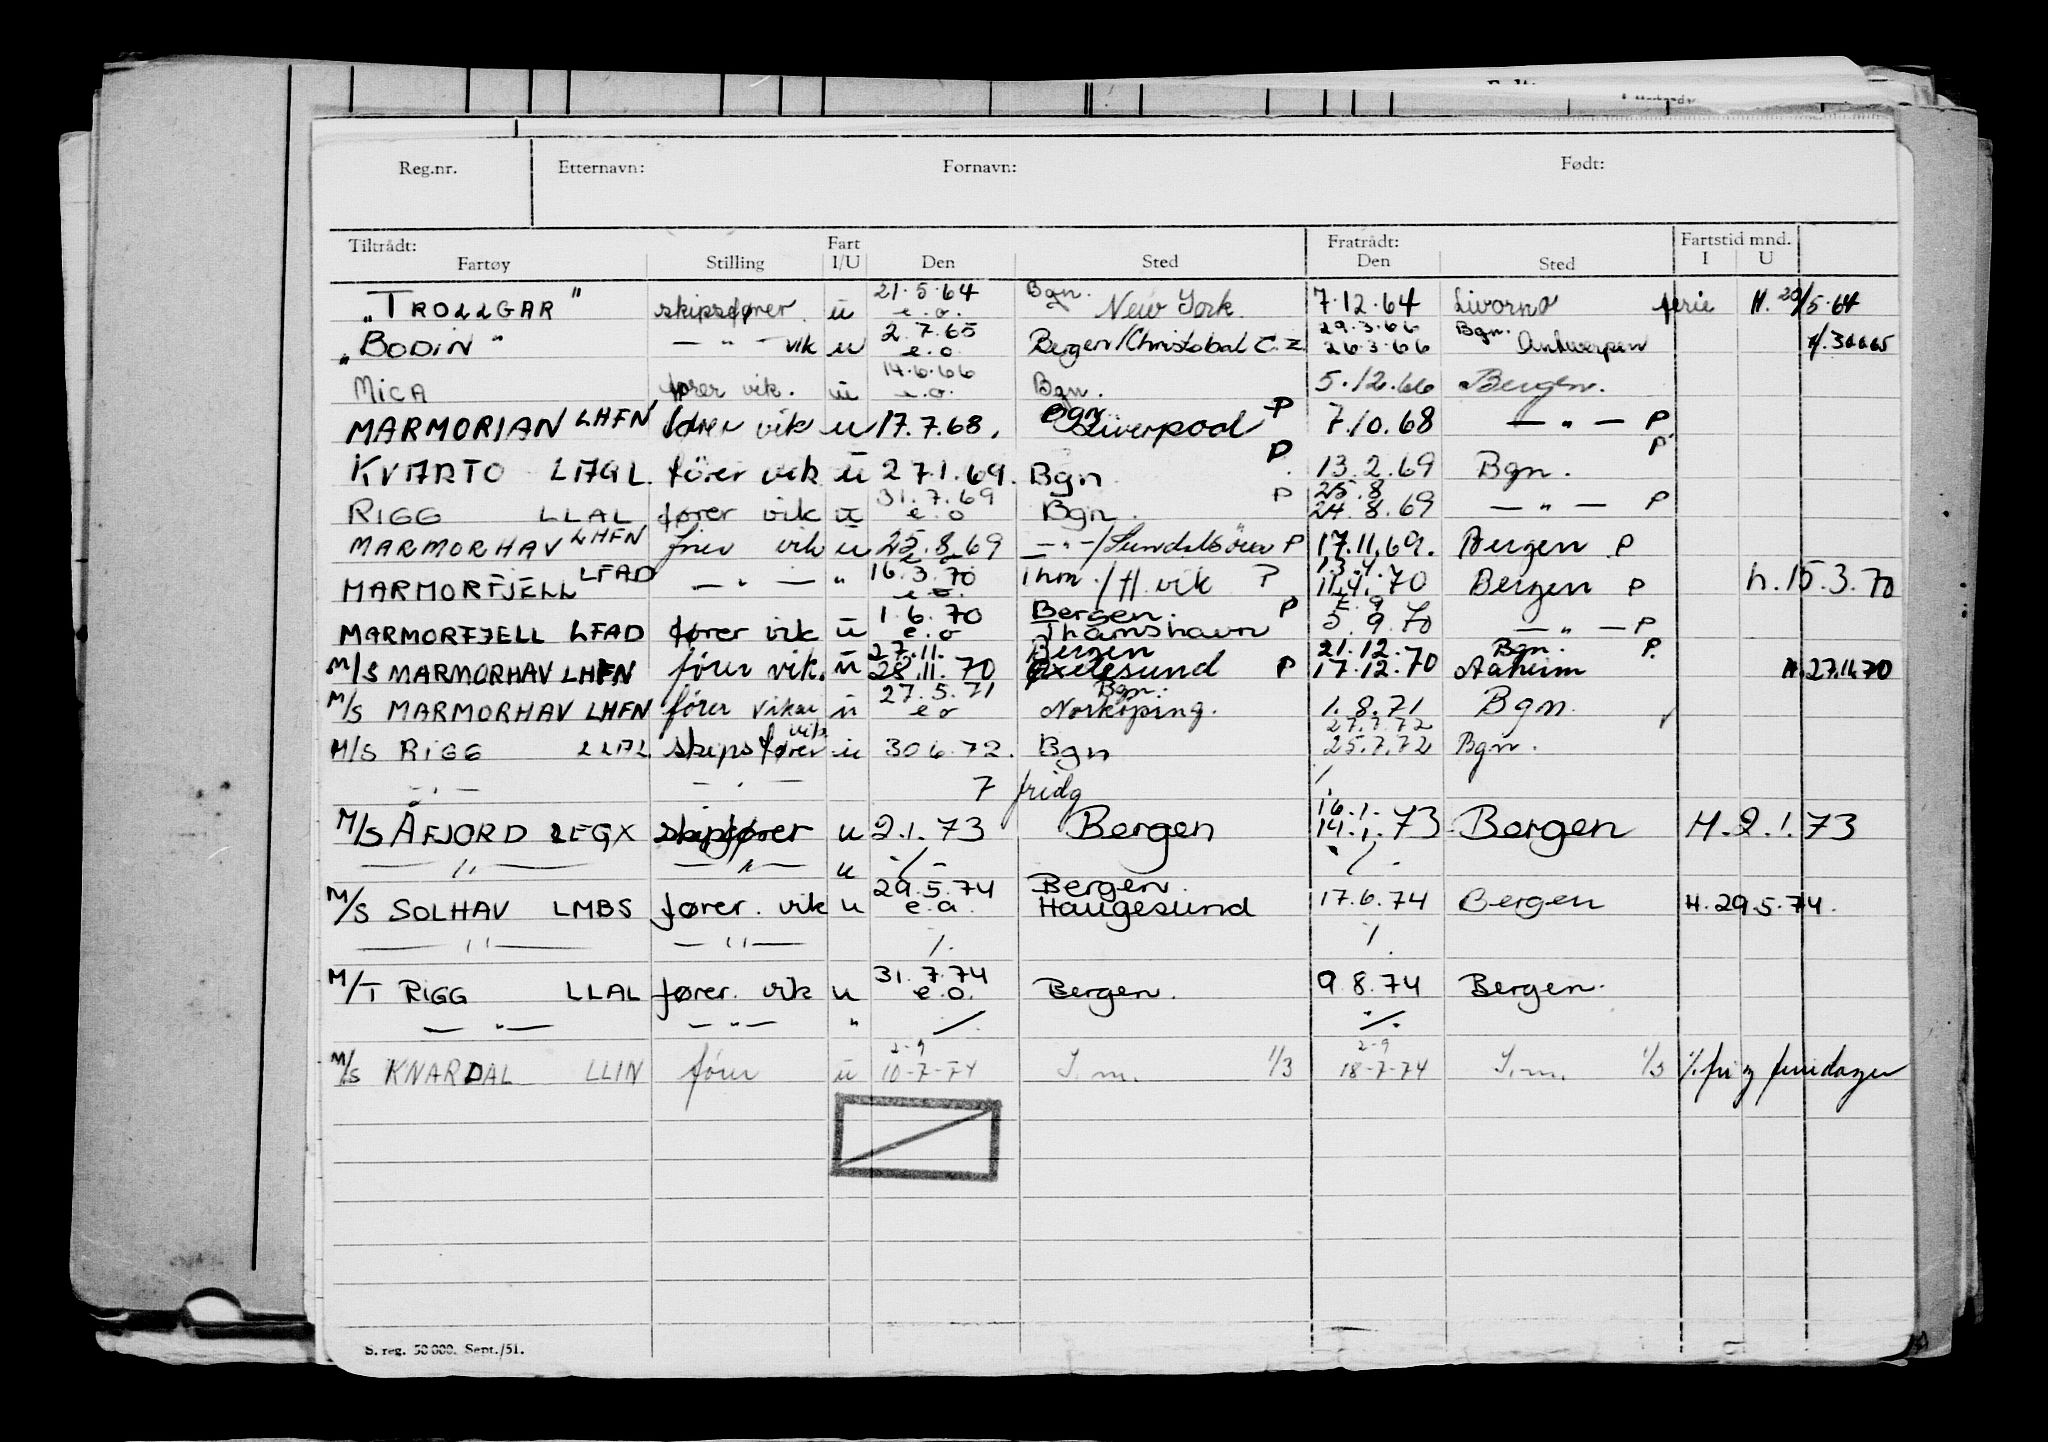 Reg.nr. Etternavn: Fornavn: Født:
Tiltrådt: Fart Fratrådt: Fartstid mnd.
Fartøy Stilling I/U Den Sted Den Sted I U
21.5.64 Bgn.
"TROLLGAR" skipsfører u e.o. New York 7.12.64 Livorno ferie H. 20/5.64
2.7.65 29.3.66 Bgn.
"BODIN" — " — vik u e.o. Bergen/Christobal C.Z 26.3.66 Antwerpen
14.6.66
MICA fører vik. u e.o. Bgn. 5.12.66 Bergen.
Bgn P
MARMORIAN LHFN fører vik u 17.7.68. Liverpool 7.10.68 — " — P
KVARTO LAGL. fører vik u 27.1.69. Bgn P 13.2.69 Bgn. P
31.7.69 25.8
RIGG LLAL fører vik u e.o Bgn. P 24.8.69 — " — P
MARMORHAV LHFN fører vik u 25.8.69 — " —/Sundalsören P 17.11.69. Bergen P
16.3.70 13.4.
MARMORFJELL LFAD — " — " e.o. Thm./H.vik P 11.4.70 Bergen P h. 15.3.70
1.6.70 Bergen. P
MARMORFJELL LFAD fører vik u e.o Thamshavn 5.9.70 — " — P
27.11. Bergen 21.12.70 Bgn. P.
M/S MARMORHAV LHFN fører vik. u 28.11.70 Oxelesund P 17.12.70 Aaheim H.27.11.70
27.5.71 Bgn.
M/S MARMORHAV LHFN fører vikar u e.o Norköping. 1.8.71 Bgn.
vik 27.7.72
M/S RIGG LLAL skipsfører u 30.6.72. Bgn 25.7.72 Bgn.
— " — — " — 7 fridg
16.1.
M/S ÅFJORD LEGX skipsfører u 2.1.73 Bergen 14.1.73. Bergen H.2.1.73
— " — — " — u ./. ./.
29.5.74 Bergen.
M/S SOLHAV LMBS fører. vik u e.o. Haugesund 17.6.74 Bergen H.29.5.74.
— " — — " — /. /.
31.7.74
M/T RIGG LLAL fører. vik u e.o. Bergen. 9.8.74 Bergen.
— " — — " — " ./. ./.
2-9 2-9
M/S KNARDAL LLIN fører u 10-7-74 S.m. 1/3 18-7-74 S.m. 1/3 %fri og feriedager
S. reg. 50 000. Sept./51.